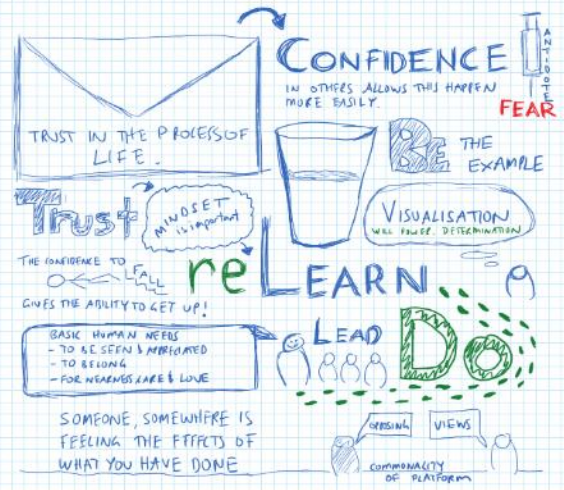 CONFIDENCE
IN OTHERS ALLOWS THIS HAPPEN
MORE EASILY.
ANTIDOTE
FEAR
TRUST IN THE PROCESS OF
LIFE.
BE THE
EXAMPLE
Trust
MINDSET
is important
VISUALISATION
WILL POWER. DETERMINATION
THE CONFIDENCE TO
FALL
GIVES THE ABILITY TO GET UP!
reLEARN
LEAD
Do
BASIC HUMAN NEEDS
- TO BE SEEN & APPRECIATED
- TO BELONG
- FOR NEARNESS CARE & LOVE
SOMEONE, SOMEWHERE IS
FEELING THE EFFECTS OF
WHAT YOU HAVE DONE
OPPOSING VIEWS
COMMONALITY
OF PLATFORM